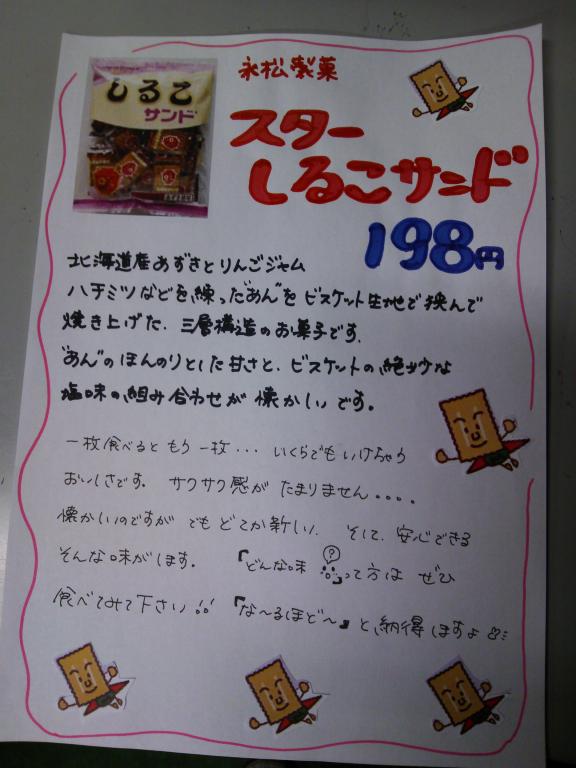 しるこ
サンド
永松製菓
スター
しるこサンド
198円
北海道産あずきとりんごジャム
ハチミツなどを練った"あん"をビスケット生地で挟んで
焼き上げた、三層構造のお菓子です。
"あん"のほんのりとした甘さと、ビスケットの絶妙な
塩味の組み合わせが懐かしいです。
一枚食べるともう一枚・・・いくらでもいけちゃう
おいしさです。サクサク感がたまりません。。。。
懐かしいのですがでもどこか新しい、そして、安心できる
そんな味がします。『どんな味?』って方はぜひ
食べてみて下さい!!『な〜るほど〜』と、納得しますよ